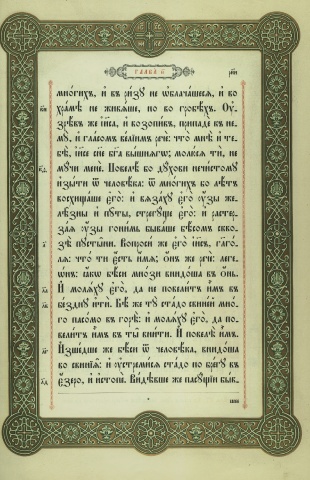 многихъ, и въ ризу не ѡблачашеся, и во
храмѣ не живѧше, но во гробѣхъ. Оу҆-
зрѣвъ же і҆и҃са, и҆ возопивъ, припаде къ не-
мꙋ̀, и҆ гласомъ велїимъ речѐ: что̀ мнѣ̀ и҆ те-
бѣ̀, і҆и҃се сн҃е бг҃а вышнѧгѡ; молюсѧ тѝ, не
мꙋчи менѐ. Повелѣ бо дꙋхови нечистомꙋ
и҆зыти ѿ человѣка: ѿ многихъ бо лѣтъ
восхищаше є҆го̀: и҆ вѧзахꙋ є҆го̀ оу҆зы же-
лѣзны и҆ пꙋты, стрегꙋще є҆го̀: и҆ растер-
заѧ оу҆зы гонимь бываше бѣсомъ сквѡ-
зѣ пꙋстыни. Вопроси же є҆го̀ і҆и҃съ, глаго-
лѧ: что̀ ти є҆сть и҆мѧ; Ѻ҆нъ же речѐ: леге-
ѡ́нъ: ꙗ҆кѡ бѣси мнози внидоша въ о҆нь.
И҆ молѧхꙋ є҆го̀, да не повелитъ и҆мъ въ
безднꙋ и҆ти. Бѣ же тꙋ̀ стадо свинїй мно-
го пасомо въ горѣ̀: и҆ молѧхꙋ є҆го̀, да по-
велитъ и҆мъ въ ты̑ внити. И҆ повелѣ и҆мъ.
И҆зшедше же бѣси ѿ человѣка, внидоша
во свинїѧ: и҆ оу҆стремисѧ стадо по брегꙋ въ
є҆зеро, и҆ истопе. Видѣвше же пасꙋщїи быв-